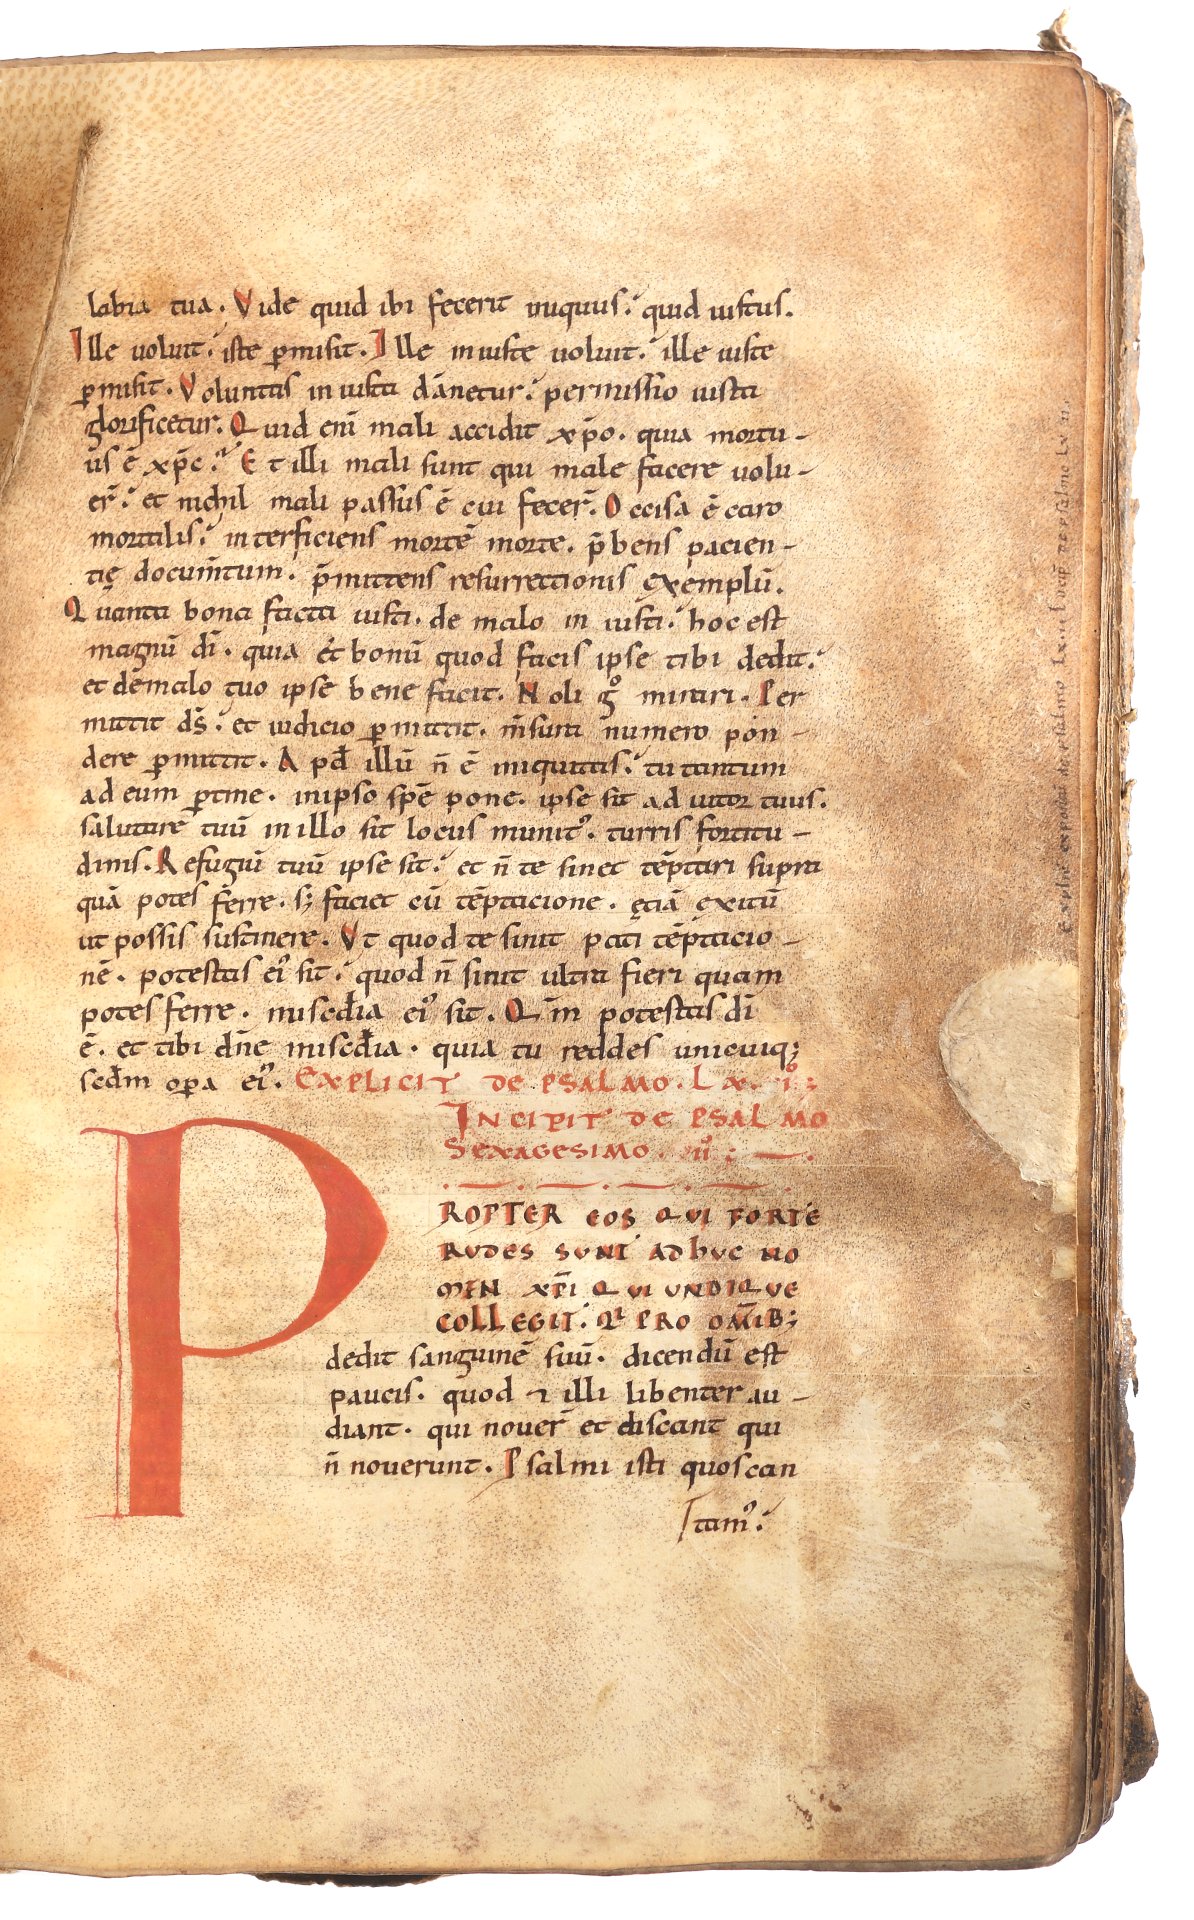 labia tua. Vide quid ibi fecerit iniquus. quid iustus.
Ille uoluit. iste ꝑmisit. Ille iniuste uoluit. ille iuste
ꝑmisit. Voluntas iniusta dānetur. permissio iusta
glorificetur. Quid enī mali accidit xp̄o. quia mortu-
us ē xp̄c. Et illi mali sunt qui male facere uolu-
er̄. et nichil mali passus ē cui fecer̄. Occisa ē caro
mortalis. interficiens mortē morte. p̄bens pacien-
tię docum̄tum. p̄mittens resurrectionis exemplū.
Quanta bona facta iusti. de malo iniusti. hoc est
magnū dī. quia et bonū quod facis ipse tibi dedit.
et de malo tuo ipse bene facit. Noli gͦ mirari. Per
mittit ds̄. et iudicio ꝑmittit. m̄sura numero pon-
dere ꝑmittit. Apd̄ illū n̄ ē iniquitas. tu tantum
ad eum ꝑtine. in ipso spē pone. ipse sit adiutor tuus.
salutare tuū in illo sit locus munitꝰ. turris fortitu-
dinis. Refugiū tuū ipse sit. et n̄ te sinet tēptari supra
quā potes ferre. sꝫ faciet cū tēptacione. ętiā exitū
ut possis sustinere. Vt quod te sinit pati tēptacio-
nē. potestas eiꝰ sit. quod n̄ sinit ultra fieri quam
potes ferre. miscd̄ia eiꝰ sit. Qm̄ potestas dī
ē. et tibi dn̄e miscd̄ia. quia tu reddes unicuiqꝫ
scd̄m oꝑa eiꝰ. EXPLICIT DE PSALMO. LX.Iͦͦ.
INCIPIT DE PSALMO
SEXAGESIMO. IIͦ.
PROPTER EOS QUI FORTE
RUDES SUNT ADHUC NO
MEN XP̄I QUI UNDIQUE
COLLEGIT. QI PRO OM̄IBꝫ
dedit sanguinē suū. dicendū est
paucis. quod ⁊ illi libenter au-
diant. qui nouer̄ et discant qui
n̄ nouerunt. Psalmi isti quos can
tamꝰ.